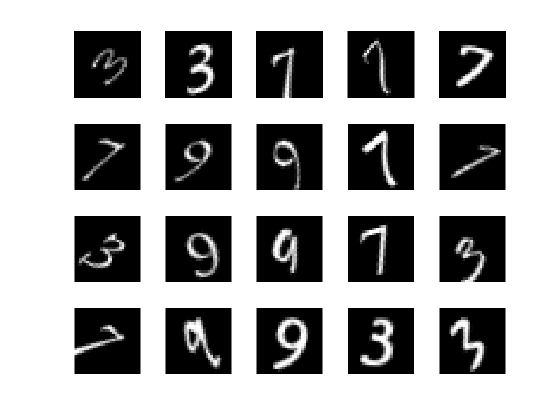 3 3 7 7 7
7 9 9 7 7
3 9 9 7 3
7 9 9 3 3